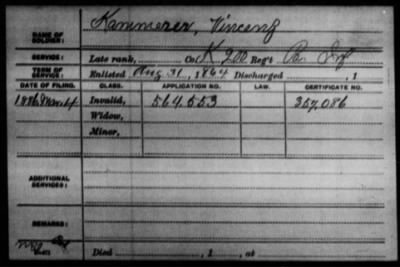 NAME OF SOLDIER: Kammerer, Vincenz
SERVICE: Late rank, Co. K 200 Reg't Pa. Inf
TERM OF SERVICE: Enlisted Aug. 31, 1864 Discharged , 1
DATE OF FILING. CLASS. APPLICATION NO. LAW. CERTIFICATE NO.
1886 Mar. 4 Invalid, 564.553 357,086
Widow,
Minor,
ADDITIONAL SERVICES:
REMARKS:
Died , 1 , at